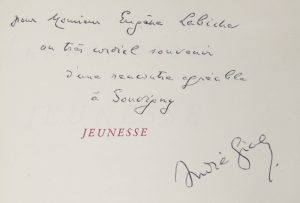 pour Monsieur Eugène Labiche
au très cordial souvenir
d'une rencontre agréable
à
JEUNESSE
André